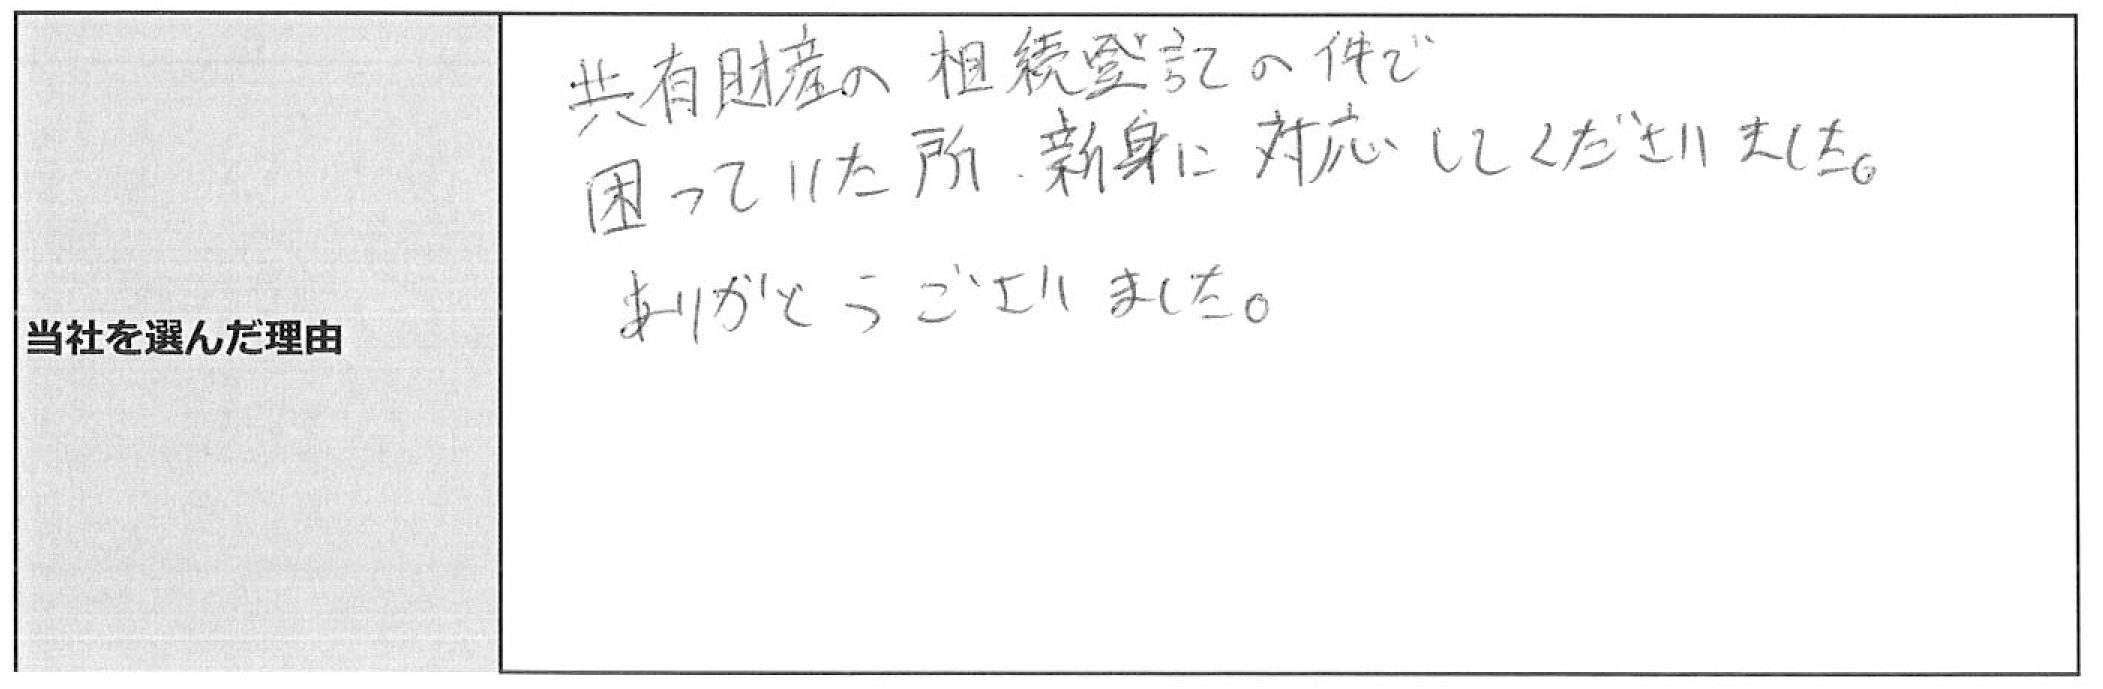 当社を選んだ理由
共有財産の相続登記の件で
困っていた所、新身に対応してくださいました。
ありがとうございました。